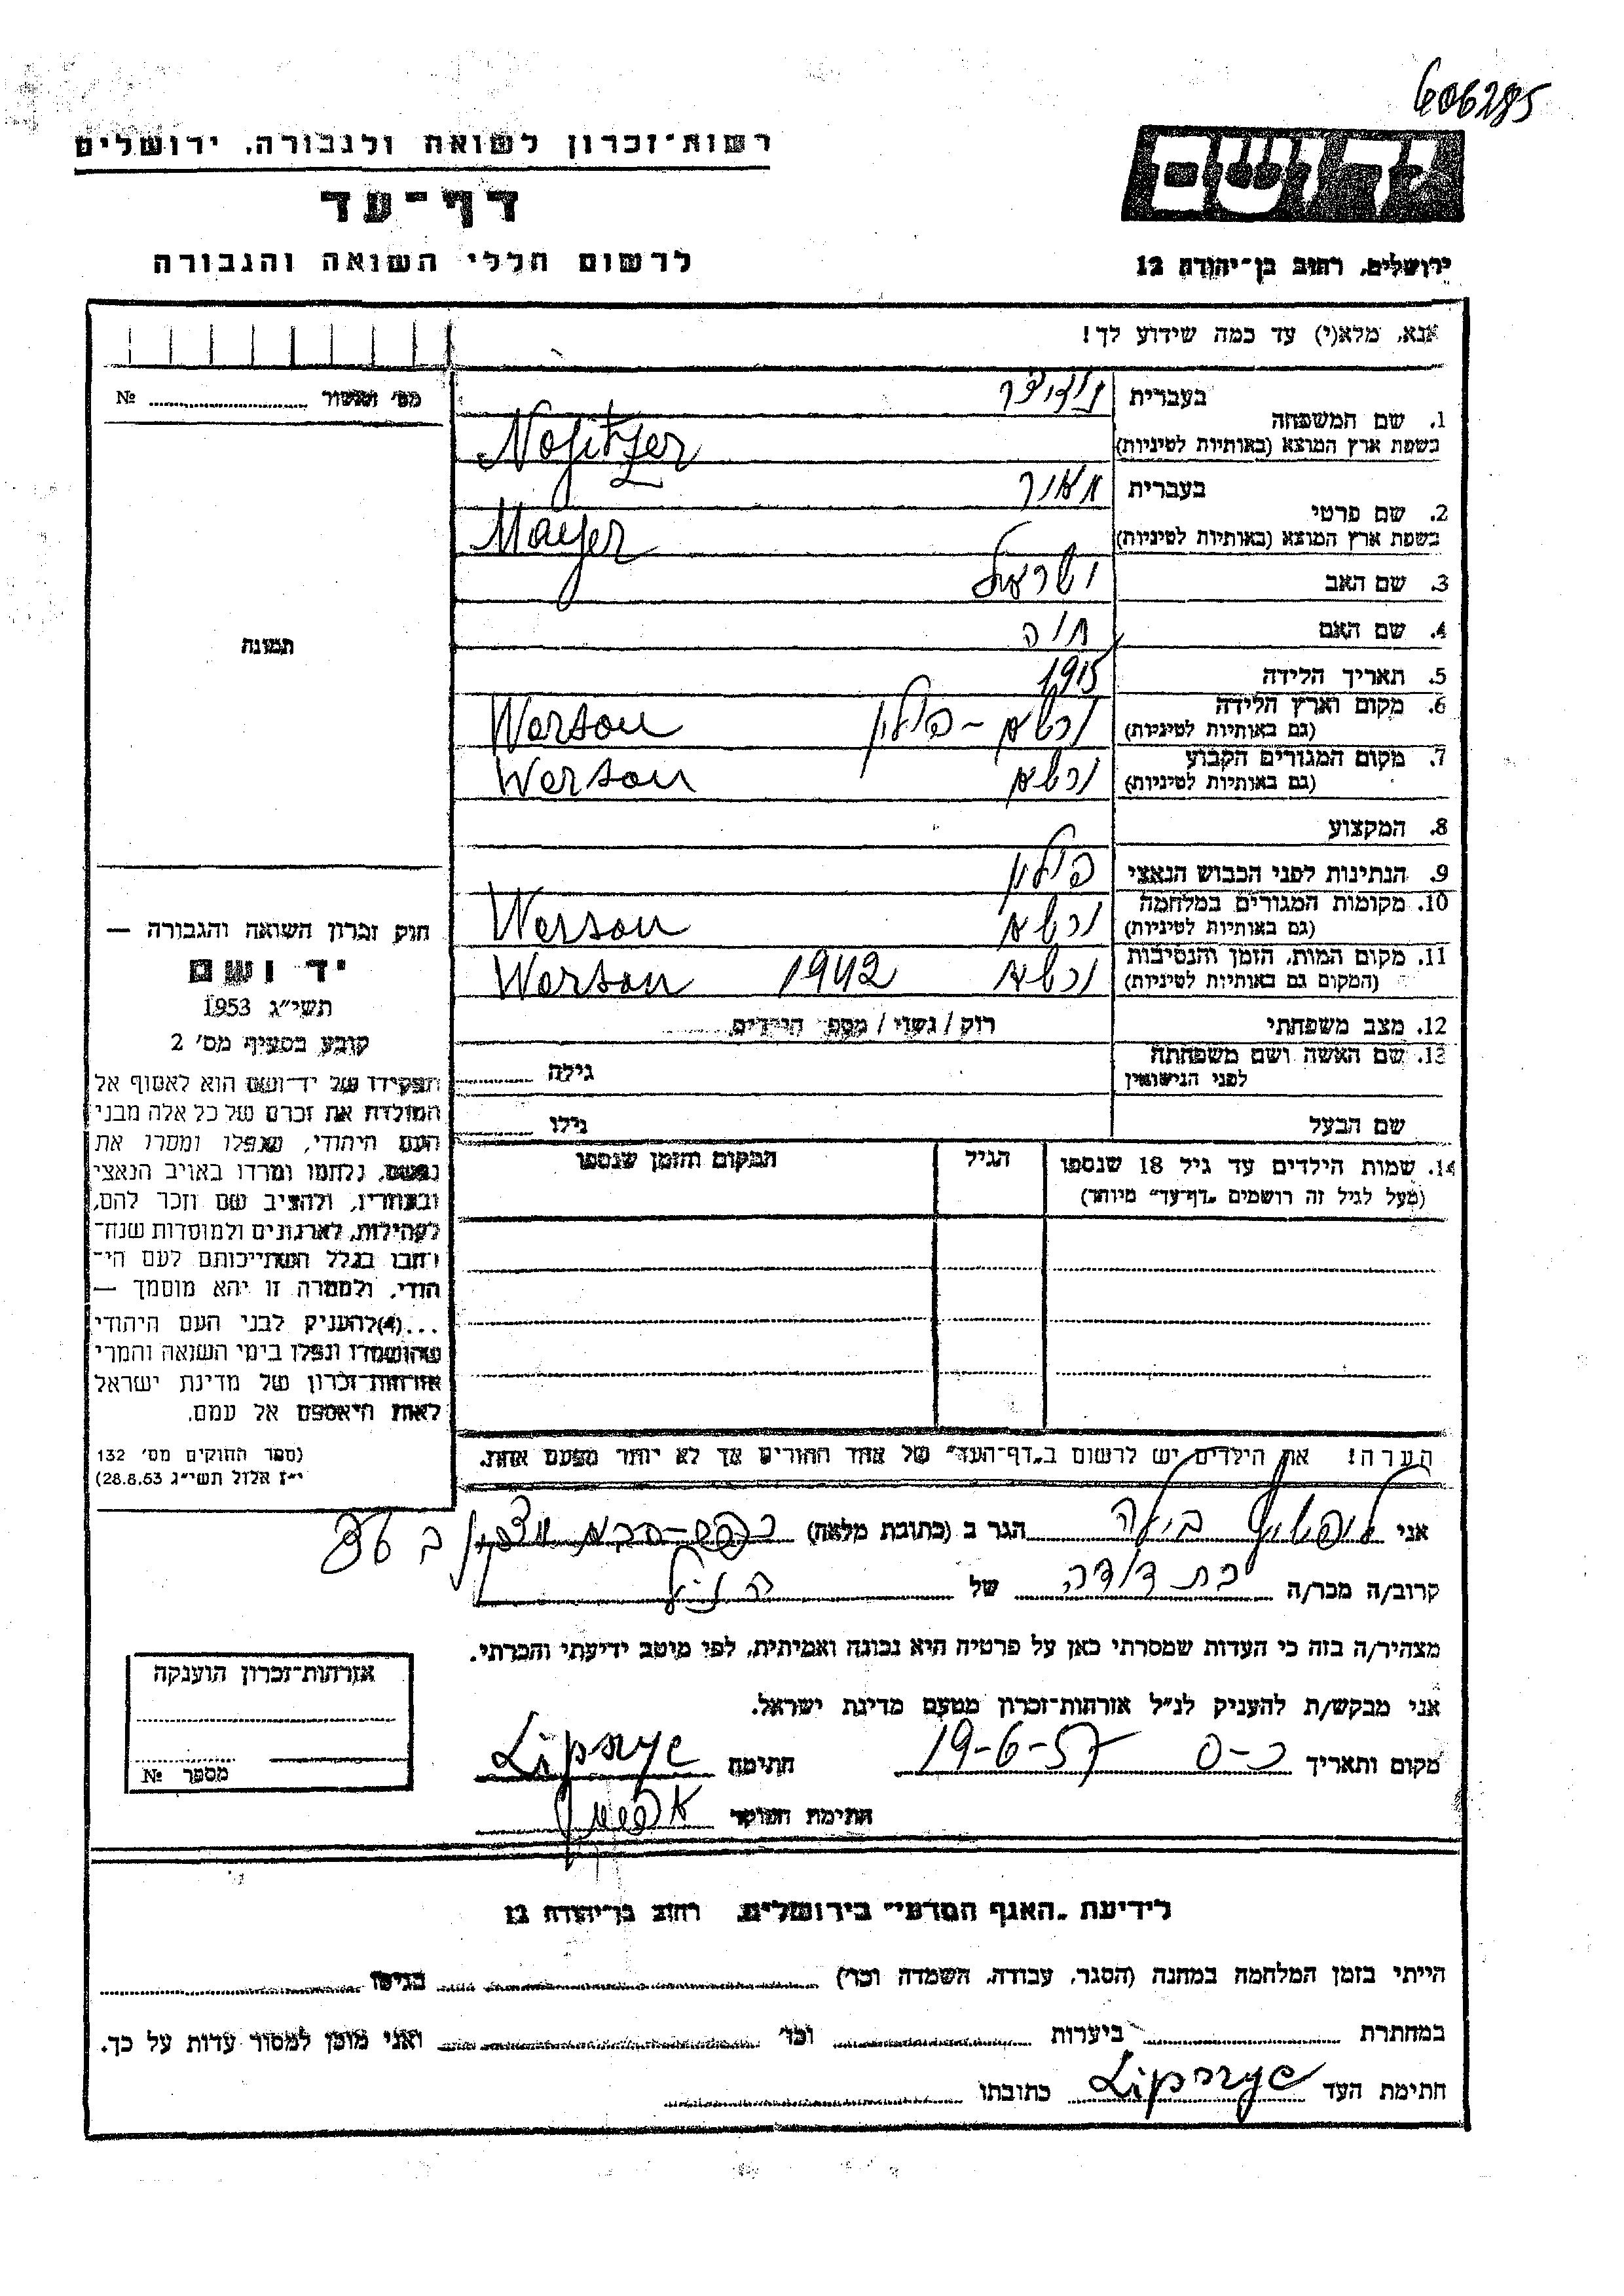 606285
רשות־זכרון לשואה ולגבורה, ירושלים
דף־עד
לרשום חללי השואה והגבורה
יד ושם
ירושלים, רחוב בן־יהודה 12
אנא, מלא(י) עד כמה שידוע לך!
מס׳ תאשור № 
1. שם המשפחה
בעברית
בשפת ארץ המוצא (באותיות לטיניות)
Nojitzer
2. שם פרטי
בעברית מאיר
בשפת ארץ המוצא (באותיות לטיניות) Majer
3. שם האב ישראל
4. שם האם חיה
5. תאריך הלידה 1915
6. מקום וארץ הלידה
(גם באותיות לטיניות) ורשא - פולין Warsou
7. מקום המגורים הקבוע
(גם באותיות לטיניות) ורשא Warsou
8. המקצוע
9. הנתינות לפני הכבוש הנאצי פולין
10. מקומות המגורים במלחמה
(גם באותיות לטיניות) ורשא Warsou
11. מקום המות, הזמן והנסיבות
(המקום גם באותיות לטיניות) ורשא 1942 Warsou
12. מצב משפחתי רוק / נשוי / מספר הילדים
13. שם האשה ושם משפחתה
לפני הנישואין גילה
שם הבעל גילו
14. שמות הילדים עד גיל 18 שנספו הגיל המקום והזמן שנספו
(מעל לגיל זה רושמים „דף־עד״ מיוחד)
הערה! את הילדים יש לרשום ב„דף־העד״ של אחד ההורים אך לא יותר מפעם אחת.
תמונה
חוק זכרון השואה והגבורה —
יד ושם
תשי״ג 1953
קובע בסעיף מס׳ 2
תפקידו של יד־ושם הוא לאסוף אל
המולדת את זכרם של כל אלה מבני
העם היהודי, שנפלו ומסרו את
נפשם, נלחמו ומרדו באויב הנאצי
ובעוזריו, ולהציב שם וזכר להם,
לקהילות, לארגונים ולמוסדות שנח־
רבו בגלל השתייכותם לעם הי־
הודי, ולמטרה זו יהא מוסמך —
...(4)להעניק לבני העם היהודי
שהושמדו ונפלו בימי השואה והמרי
אזרחות־זכרון של מדינת ישראל
לאות היאספם אל עמם.
(ספר החוקים מס׳ 132
י״ז אלול תשי״ג 28.8.53)
אני הגר ב (כתובת מלאה) כפר-סבא
קרוב/ה מכר/ה בת דודה של הנ״ל
מצהיר/ה בזה כי העדות שמסרתי כאן על פרטיה היא נכונה ואמיתית, לפי מיטב ידיעתי והכרתי.
אני מבקש/ת להעניק לנ״ל אזרחות־זכרון מטעם מדינת ישראל.
מקום ותאריך כ-ס 19-6-57 חתימה Lipszyc
חתימת הפוקד
אזרחות־זכרון הוענקה
מספר №
לידיעת „האגף המדעי״ בירושלים, רחוב בן־יהודה 12
הייתי בזמן המלחמה במחנה (הסגר, עבודה, השמדה וכו׳) בגיטו
במחתרת ביערות וכו׳ ואני מוכן למסור עדות על כך.
חתימת העד Lipszyc כתובתו